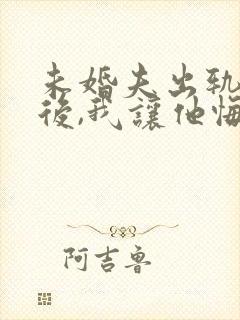 未婚夫出軌
後,我讓他悔
阿吉魯